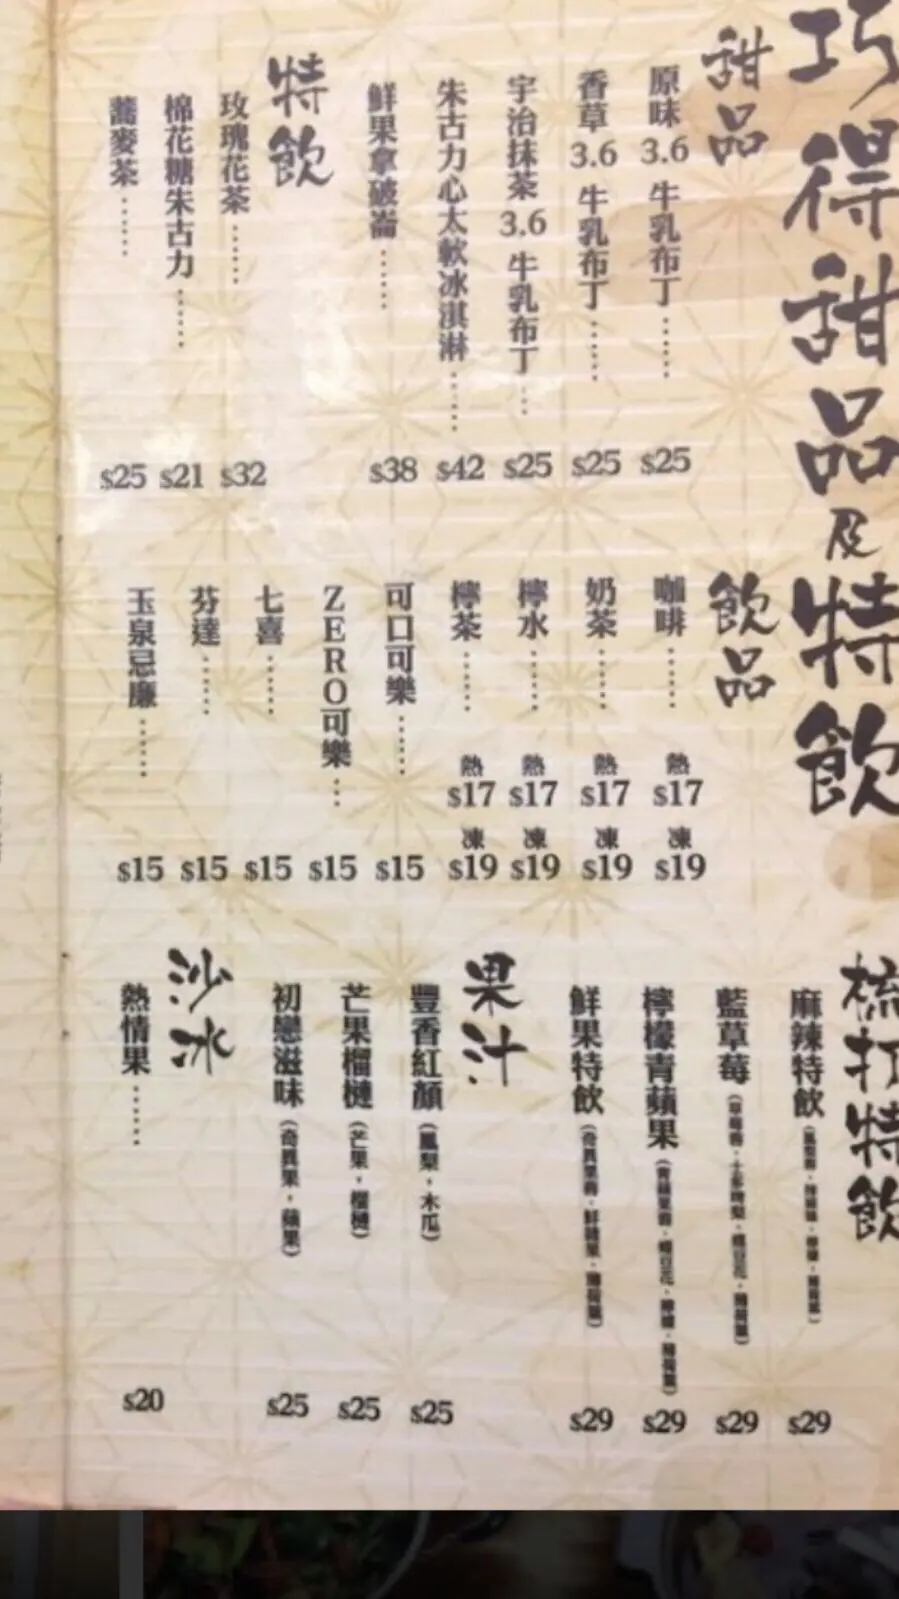 巧得甜品及特飲
甜品
原味3.6牛乳布丁 …… $25
香草3.6牛乳布丁 …… $25
宇治抹茶3.6牛乳布丁 …… $25
朱古力心太軟冰淇淋 …… $42
鮮果拿破崙 …… $38
特飲
玫瑰花茶 …… $32
棉花糖朱古力 …… $21
蕎麥茶 …… $25
飲品
咖啡 …… 熱 $17 凍 $19
奶茶 …… 熱 $17 凍 $19
檸水 …… 熱 $17 凍 $19
檸茶 …… 熱 $17 凍 $19
可口可樂 …… $15
ZERO可樂 … $15
七喜 …… $15
芬達 …… $15
玉泉忌廉 …… $15
梳打特飲
麻辣特飲 $29
藍草莓 $29
檸檬青蘋果 $29
鮮果特飲 $29
果汁
豐香紅顏（鳳梨，木瓜） $25
芒果榴槤（芒果，榴槤） $25
初戀滋味（奇異果，蘋果） $25
沙冰
熱情果 …… $20